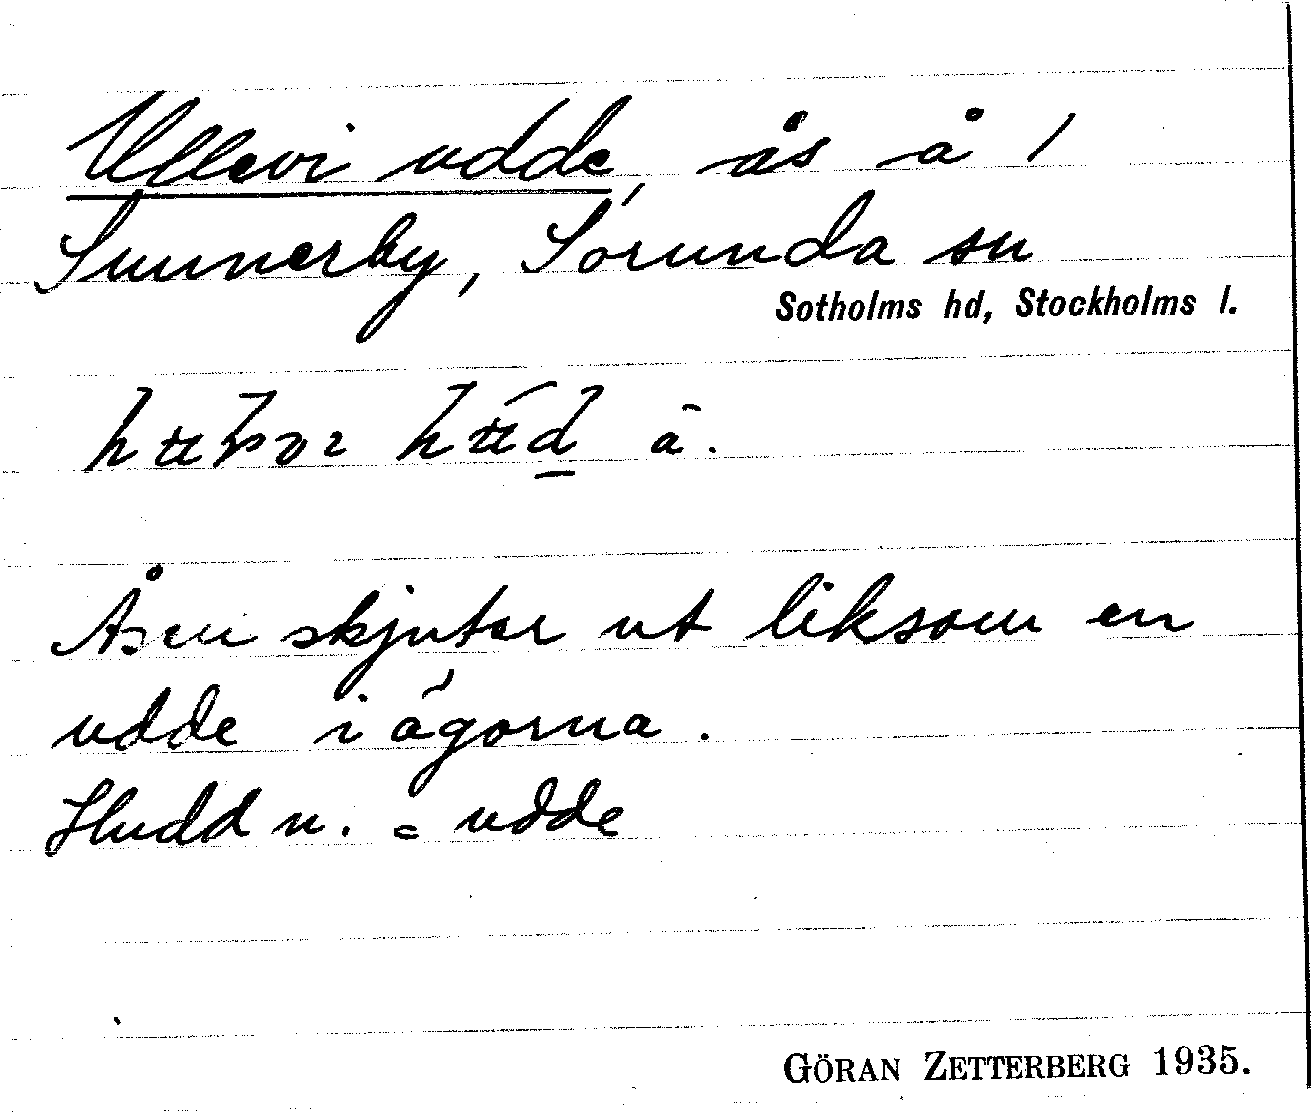 Ullevi udde, ås å /
Sunnerby, Sorunda sn
Sotholms hd, Stockholms l.
a.
Åsen skjuter ut liksom en
udde i ägorna.
Hudd n. = udde
GÖRAN ZETTERBERG 1935.